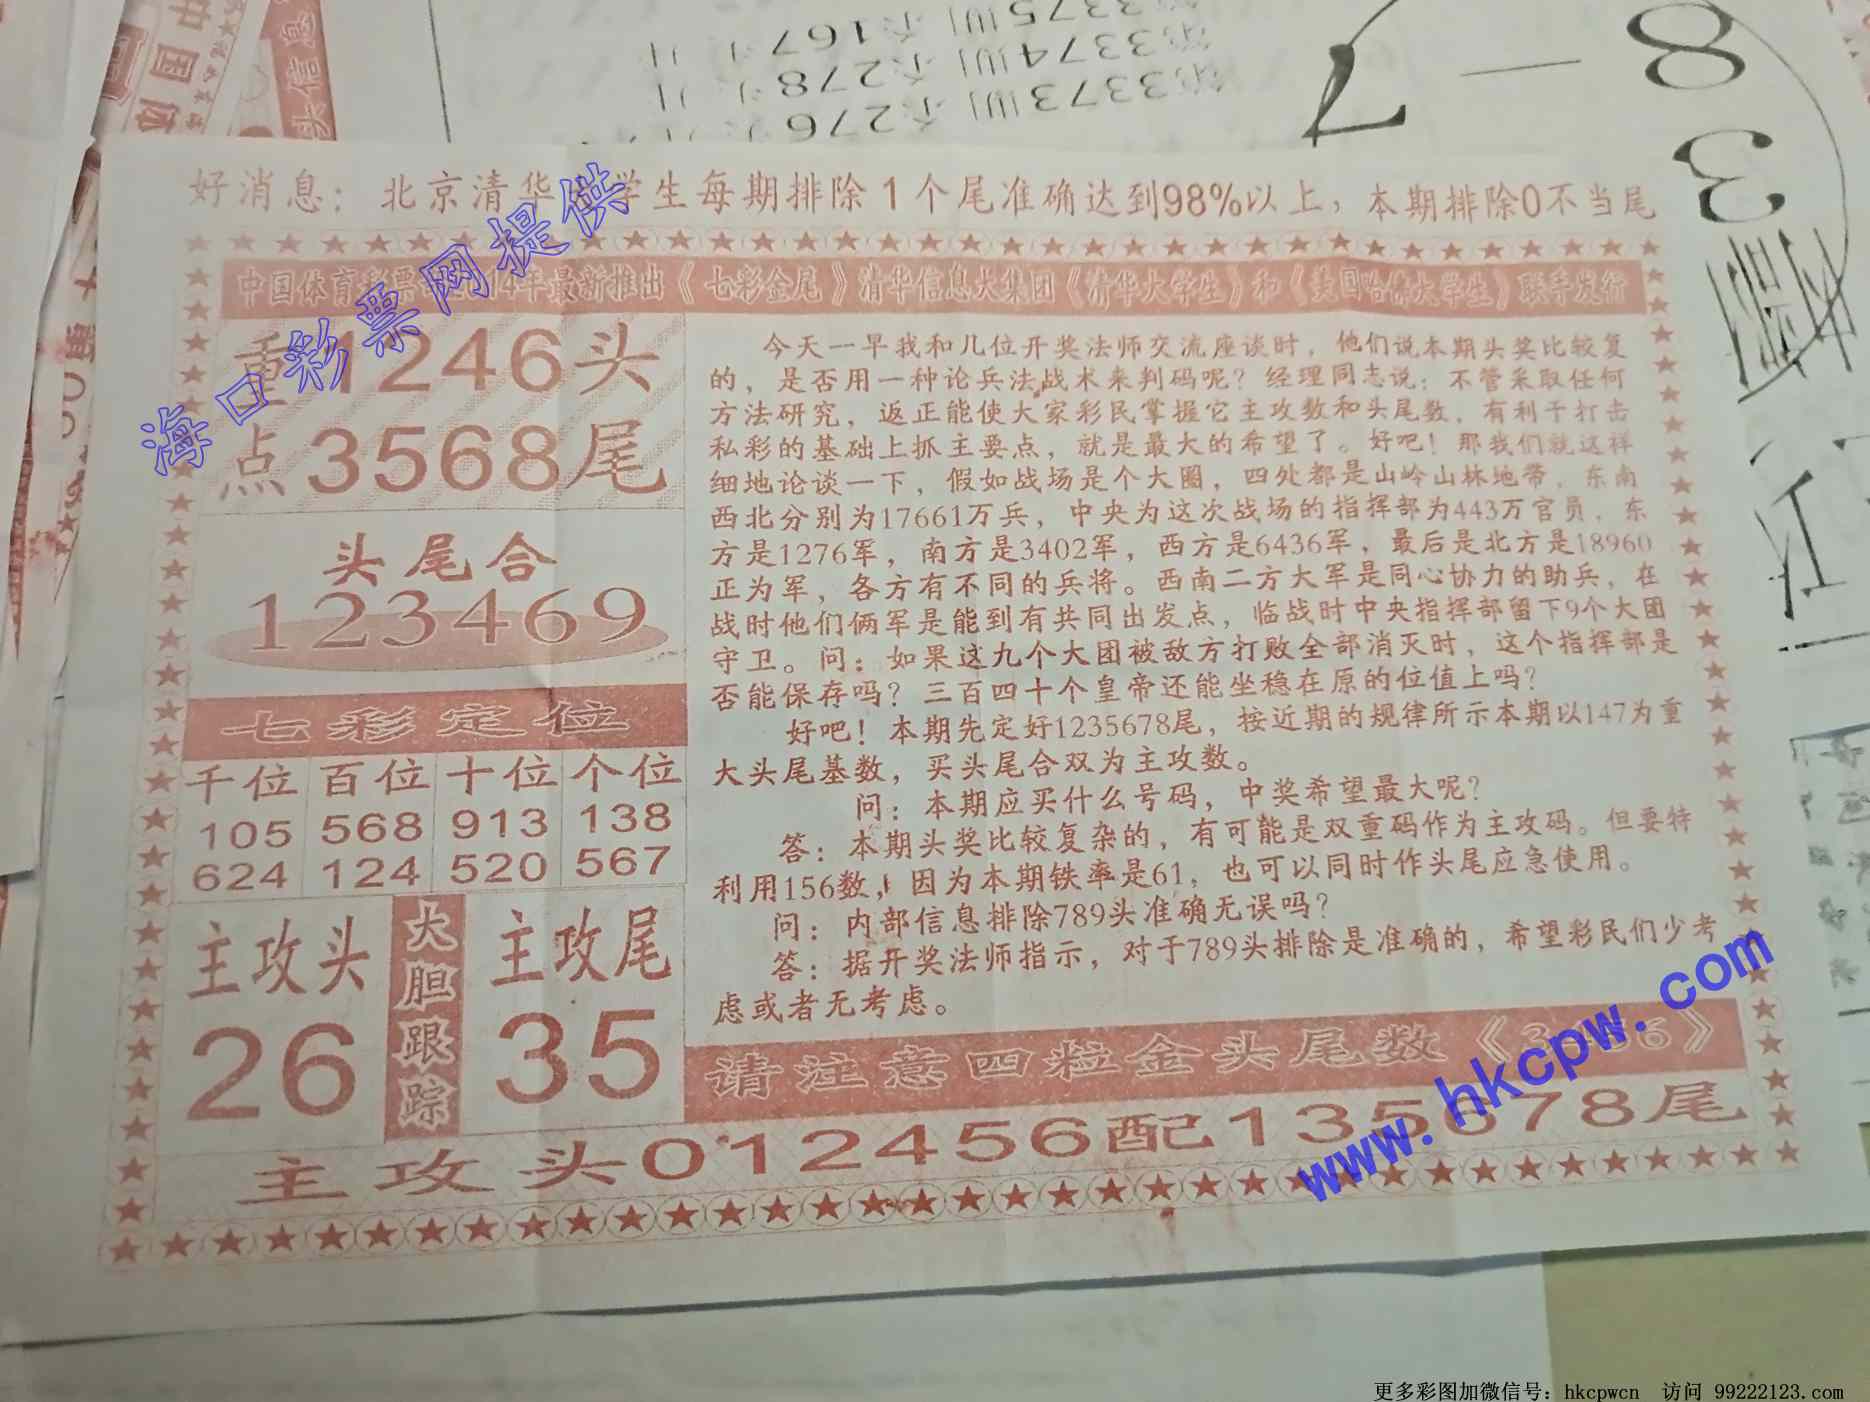 好消息：北京清华 学生每期排除1个尾准确达到98%以上，本期排除0不当尾
中国体育彩票 14年最新推出《七彩金尾》清华信息大集团《清华大学生》和《美国哈佛大学生》联手发行
重 1246头
点 3568尾
头尾合
123469
七彩定位
千位 百位 十位 个位
105 568 913 138
624 124 520 567
主攻头 26
大胆跟踪
主攻尾 35
今天一早我和几位开奖法师交流座谈时，他们说本期头奖比较复
的，是否用一种论兵法战术来判码呢？经理同志说：不管采取任何
方法研究，返正能使大家彩民掌握它主攻数和头尾数，有利于打击
私彩的基础上抓主要点，就是最大的希望了。好吧！那我们就这样
细地论谈一下，假如战场是个大圈，四处都是山岭山林地带，东南
西北分别为17661万兵，中央为这次战场的指挥部为443万官员，东
方是1276军，南方是3402军，西方是6436军，最后是北方是18960
正为军，各方有不同的兵将。西南二方大军是同心协力的助兵，在
战时他们俩军是能到有共同出发点，临战时中央指挥部留下9个大团
守卫。问：如果这九个大团被敌方打败全部消灭时，这个指挥部是
否能保存吗？三百四十个皇帝还能坐稳在原的位值上吗？
好吧！本期先定好1235678尾，按近期的规律所示本期以147为重
大头尾基数，买头尾合双为主攻数。
问：本期应买什么号码，中奖希望最大呢？
答：本期头奖比较复杂的，有可能是双重码作为主攻码。但要特
利用156数，因为本期铁率是61，也可以同时作头尾应急使用。
问：内部信息排除789头准确无误吗？
答：据开奖法师指示，对于789头排除是准确的，希望彩民们少考
虑或者无考虑。
请注意四粒金头尾数《3 6》
主攻头012456配135678尾
海口彩票网提供
www.hkcpw.com
第3373期 276
3374期 278
3375期 167
8 — 7
3
中国
头信息
更多彩图加微信号：hkcpwcn 访问 99222123.com